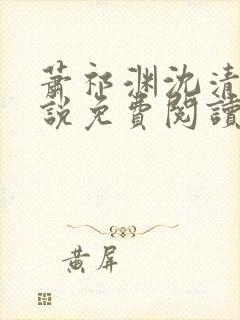 蕭祁渊沈清
說免費閱讀
黃屏